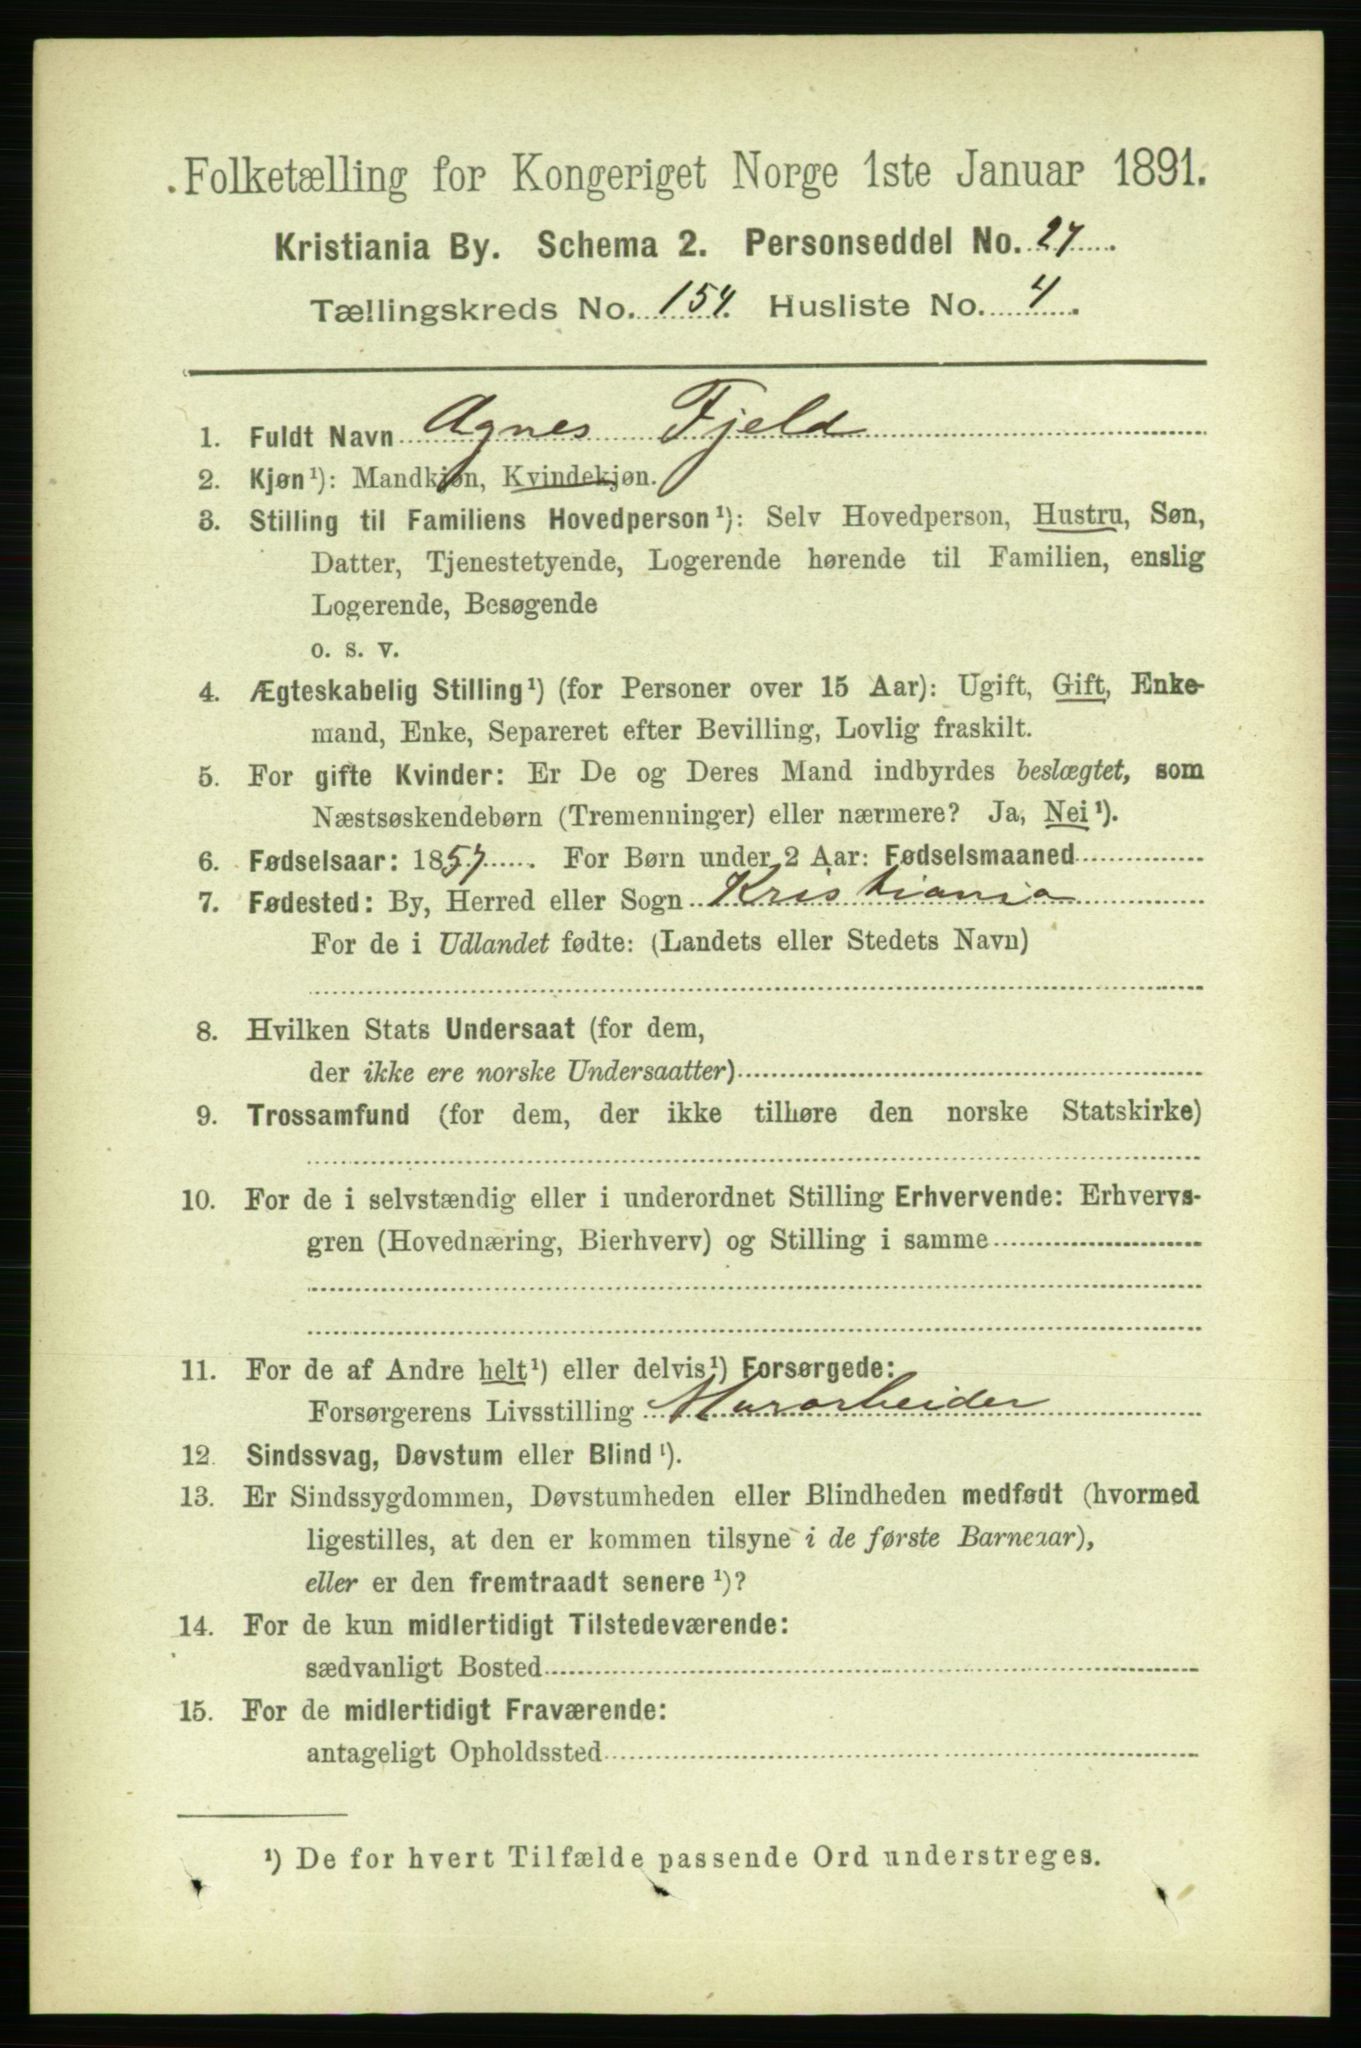 Folketælling for Kongeriget Norge 1ste Januar 1891.
Kristiania By. Schema 2. Personseddel No. 27.
Tællingskreds No. 154. Husliste No. 4.
1. Fuldt Navn Agnes Fjeld
2. Kjøn¹): Mandkjøn, Kvindekjøn.
3. Stilling til Familiens Hovedperson¹): Selv Hovedperson, Hustru, Søn,
Datter, Tjenestetyende, Logerende hørende til Familien, enslig
Logerende, Besøgende
o. s. v.
4. Ægteskabelig Stilling¹) (for Personer over 15 Aar): Ugift, Gift, Enke-
mand, Enke, Separeret efter Bevilling, Lovlig fraskilt.
5. For gifte Kvinder: Er De og Deres Mand indbyrdes beslægtet, som
Næstsøskendebørn (Tremenninger) eller nærmere? Ja, Nei¹).
6. Fødselsaar: 1857. For Børn under 2 Aar: Fødselsmaaned
7. Fødested: By, Herred eller Sogn Kristiania
For de i Udlandet fødte: (Landets eller Stedets Navn)
8. Hvilken Stats Undersaat (for dem,
der ikke ere norske Undersaatter)
9. Trossamfund (for dem, der ikke tilhøre den norske Statskirke)
10. For de i selvstændig eller i underordnet Stilling Erhvervende: Erhvervs-
gren (Hovednæring, Bierhverv) og Stilling i samme
11. For de af Andre helt¹) eller delvis¹) Forsørgede:
Forsørgerens Livsstilling Murarbeider
12. Sindssvag, Døvstum eller Blind¹).
13. Er Sindssygdommen, Døvstumheden eller Blindheden medfødt (hvormed
ligestilles, at den er kommen tilsyne i de første Barneaar),
eller er den fremtraadt senere¹)?
14. For de kun midlertidigt Tilstedeværende:
sædvanligt Bosted
15. For de midlertidigt Fraværende:
antageligt Opholdssted
¹) De for hvert Tilfælde passende Ord understreges.